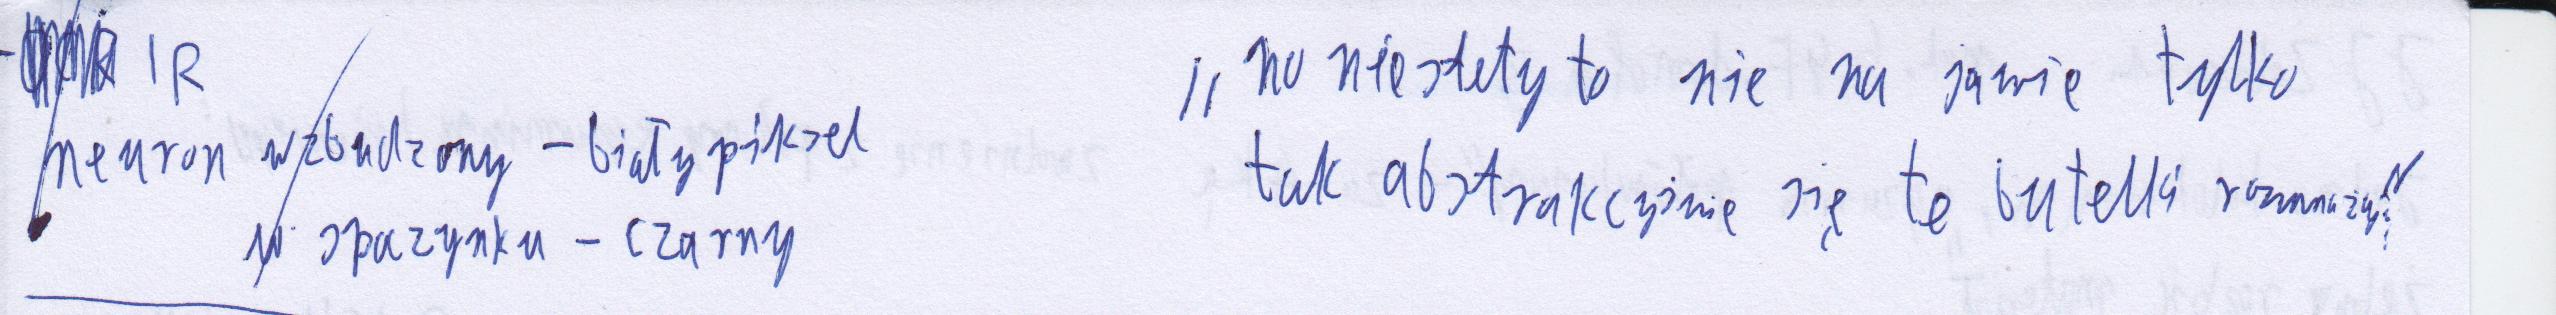 IR
neuron wzbudzony - biały piksel
w spoczynku - czarny
„no niestety to nie na jawie tylko
tak abstrakcyjnie się te butelki